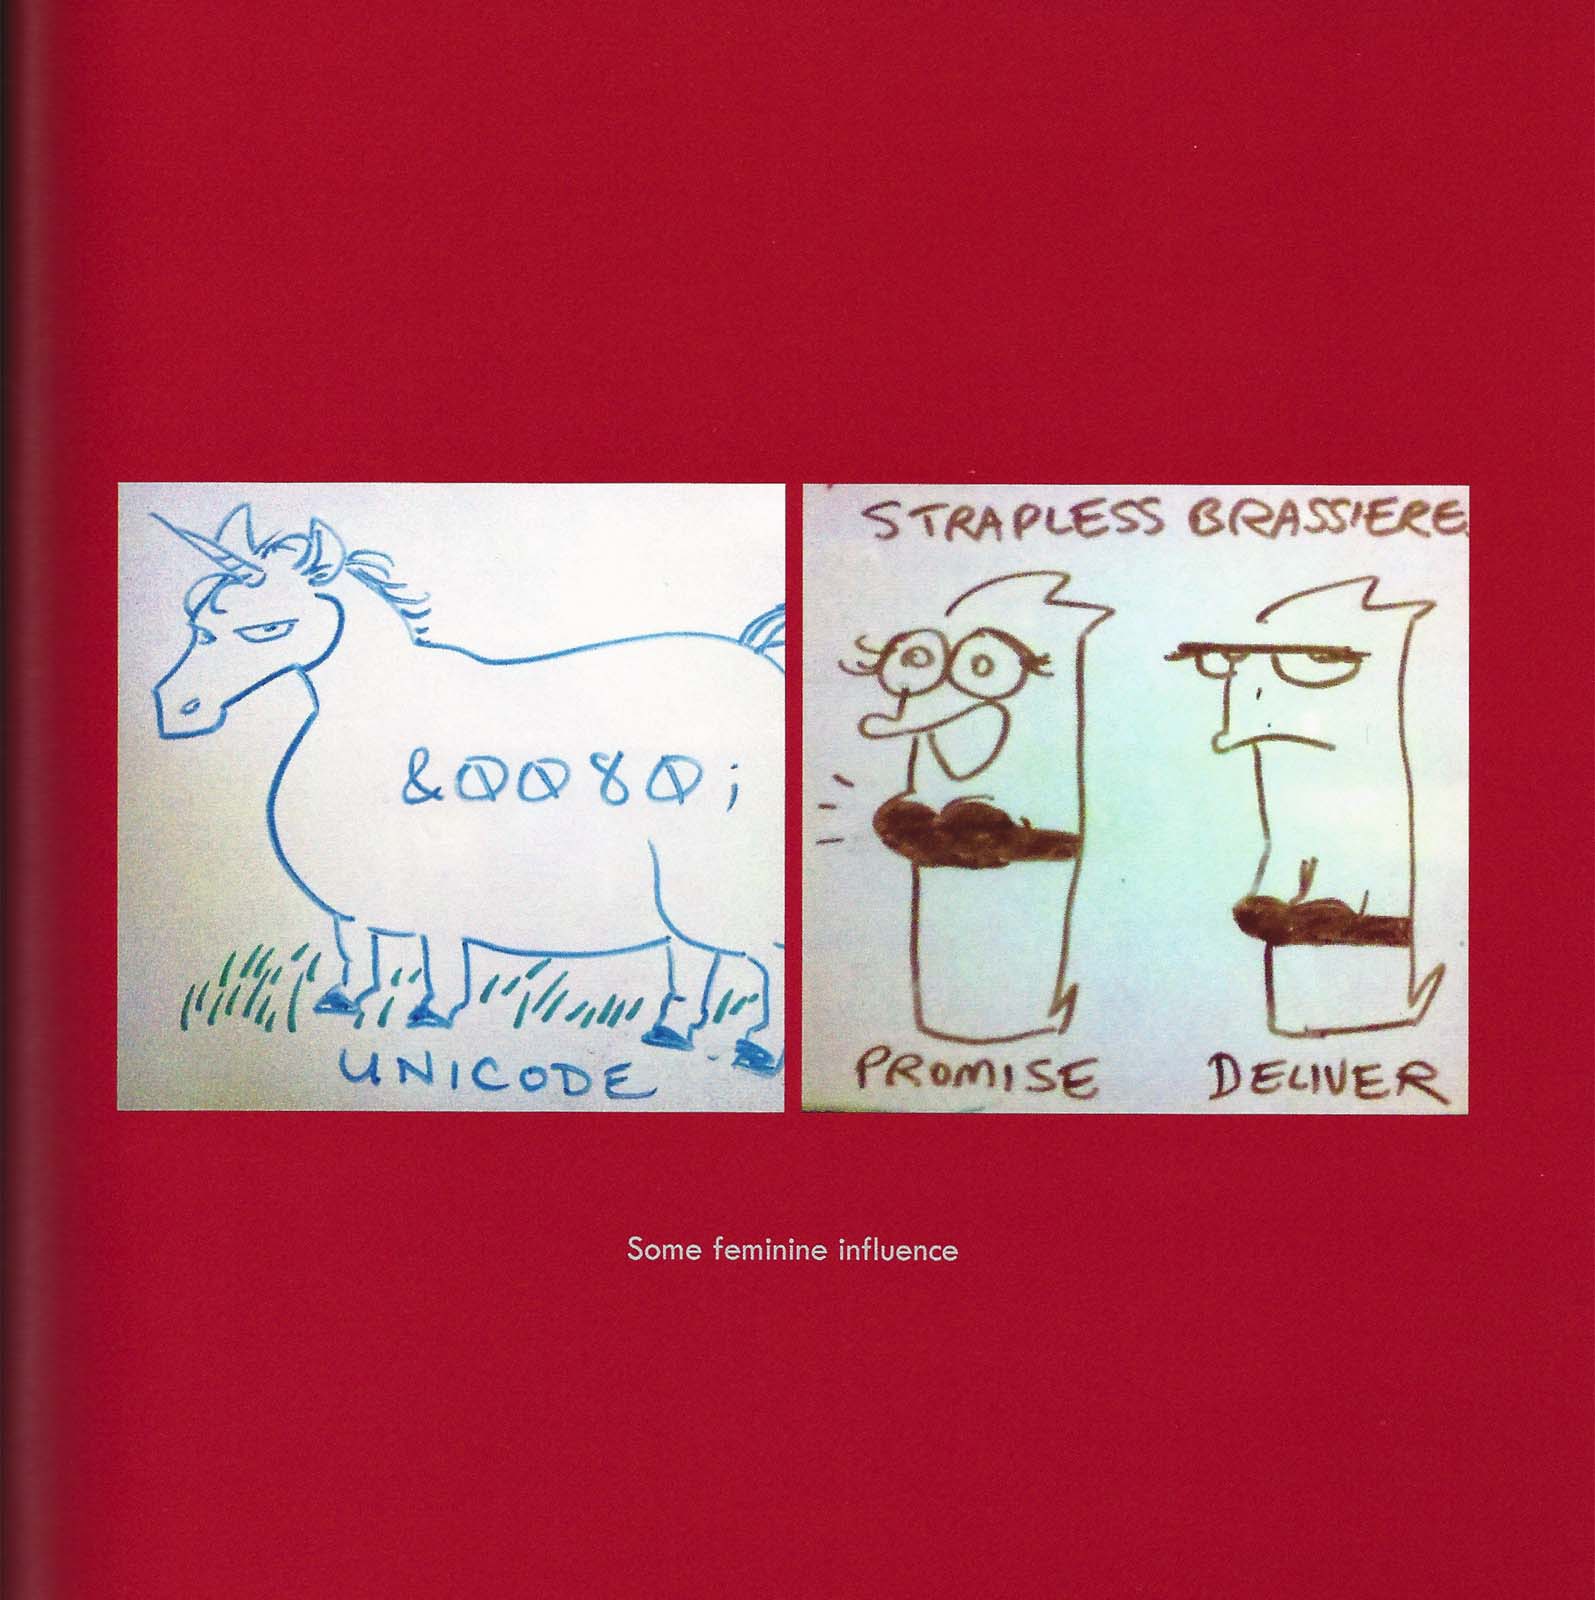 &0080;
UNICODE
STRAPLESS BRASSIERE
PROMISE DELIVER
Some feminine influence